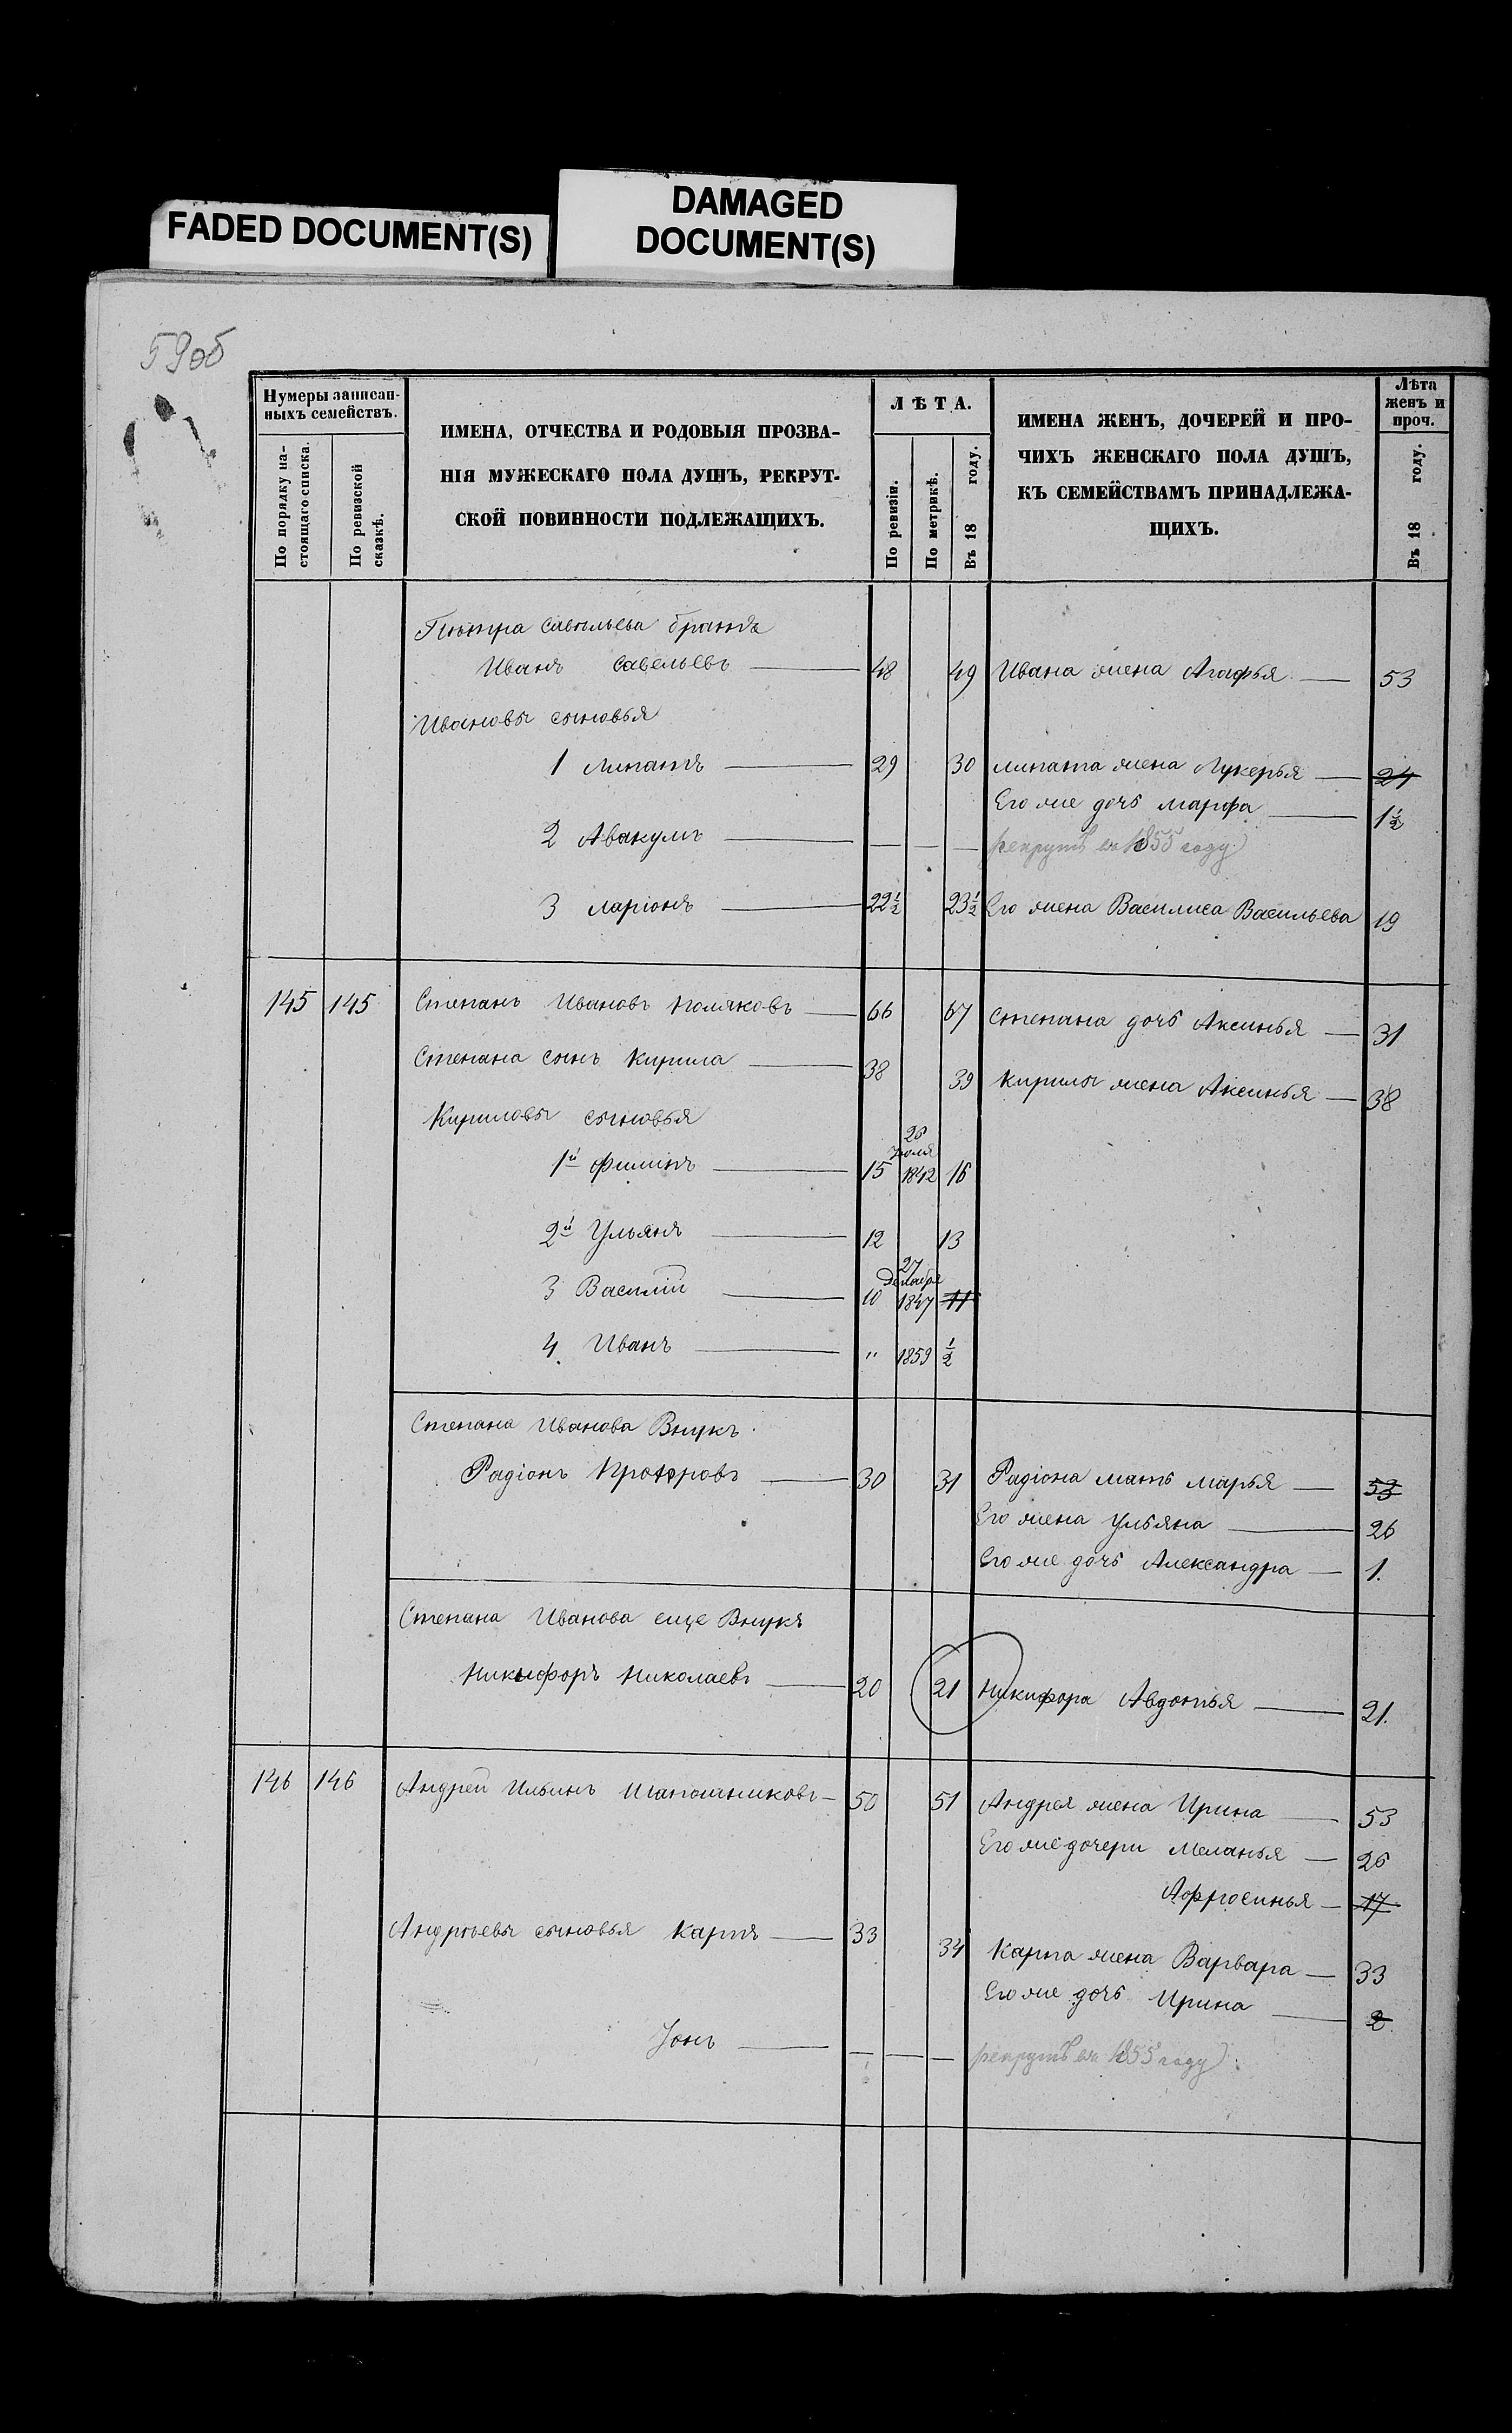 FADED DOCUMENT(S)
DAMAGED
DOCUMENT(S)
59об
Нумеры записан-
ныхъ семействъ.
По порядку на-
стоящаго списка.
По ревизской
сказкѣ.
ИМЕНА, ОТЧЕСТВА И РОДОВЫЯ ПРОЗВА-
НІЯ МУЖЕСКАГО ПОЛА ДУШЪ, РЕКРУТ-
СКОЙ ПОВИННОСТИ ПОДЛЕЖАЩИХЪ.
ЛѢТА.
По ревизіи.
По метрикѣ.
Въ 18 году.
ИМЕНА ЖЕНЪ, ДОЧЕРЕЙ И ПРО-
ЧИХЪ ЖЕНСКАГО ПОЛА ДУШЪ,
КЪ СЕМЕЙСТВАМЪ ПРИНАДЛЕЖА-
ЩИХЪ.
Лѣта
женъ и
проч.
Въ 18 году.
Савельева братъ
Иванъ Савельевъ 48 49 Ивана жена Агафья 53
Ивановы сыновья
1 Липатъ 29 30 Липата жена Лукерья 24
Его же дочь Марфа 1½
2 Авакумъ рекрутъ въ 1855 году)
3 Ларіонъ 22½ 23½ Его жена Василиса Васильева 19
145 145 Степанъ Ивановъ Поляковъ 66 67 Степана дочь Аксинья 31
Степана сынъ Кирила 38 39 Кирилы жена Аксинья 38
Кириловы сыновья
1й Филипъ 15 26 Іюля 1842 16
2й Ульянъ 12 13
3 Василій 10 27 Декабря 1847 11
4 Иванъ " 1859 ½
Степана Иванова Внукъ
Радіонъ 30 31 Радіона мать Марья 53
Его жена Ульяна 26
Его же дочь Александра 1.
Степана Иванова еще Внукъ
Никифоръ Николаевъ 20 21 Никифора Авдотья 21.
146 146 Андрей Ильинъ Шапошниковъ 50 51 Андрея жена Ирина 53
Его же дочери Меланья 26
Афросинья 17
Андреевы сыновья Карпъ 33 34 Карпа жена Варвара 33
Его же дочь Ирина 2
Іонъ рекрутъ въ 1855 году)